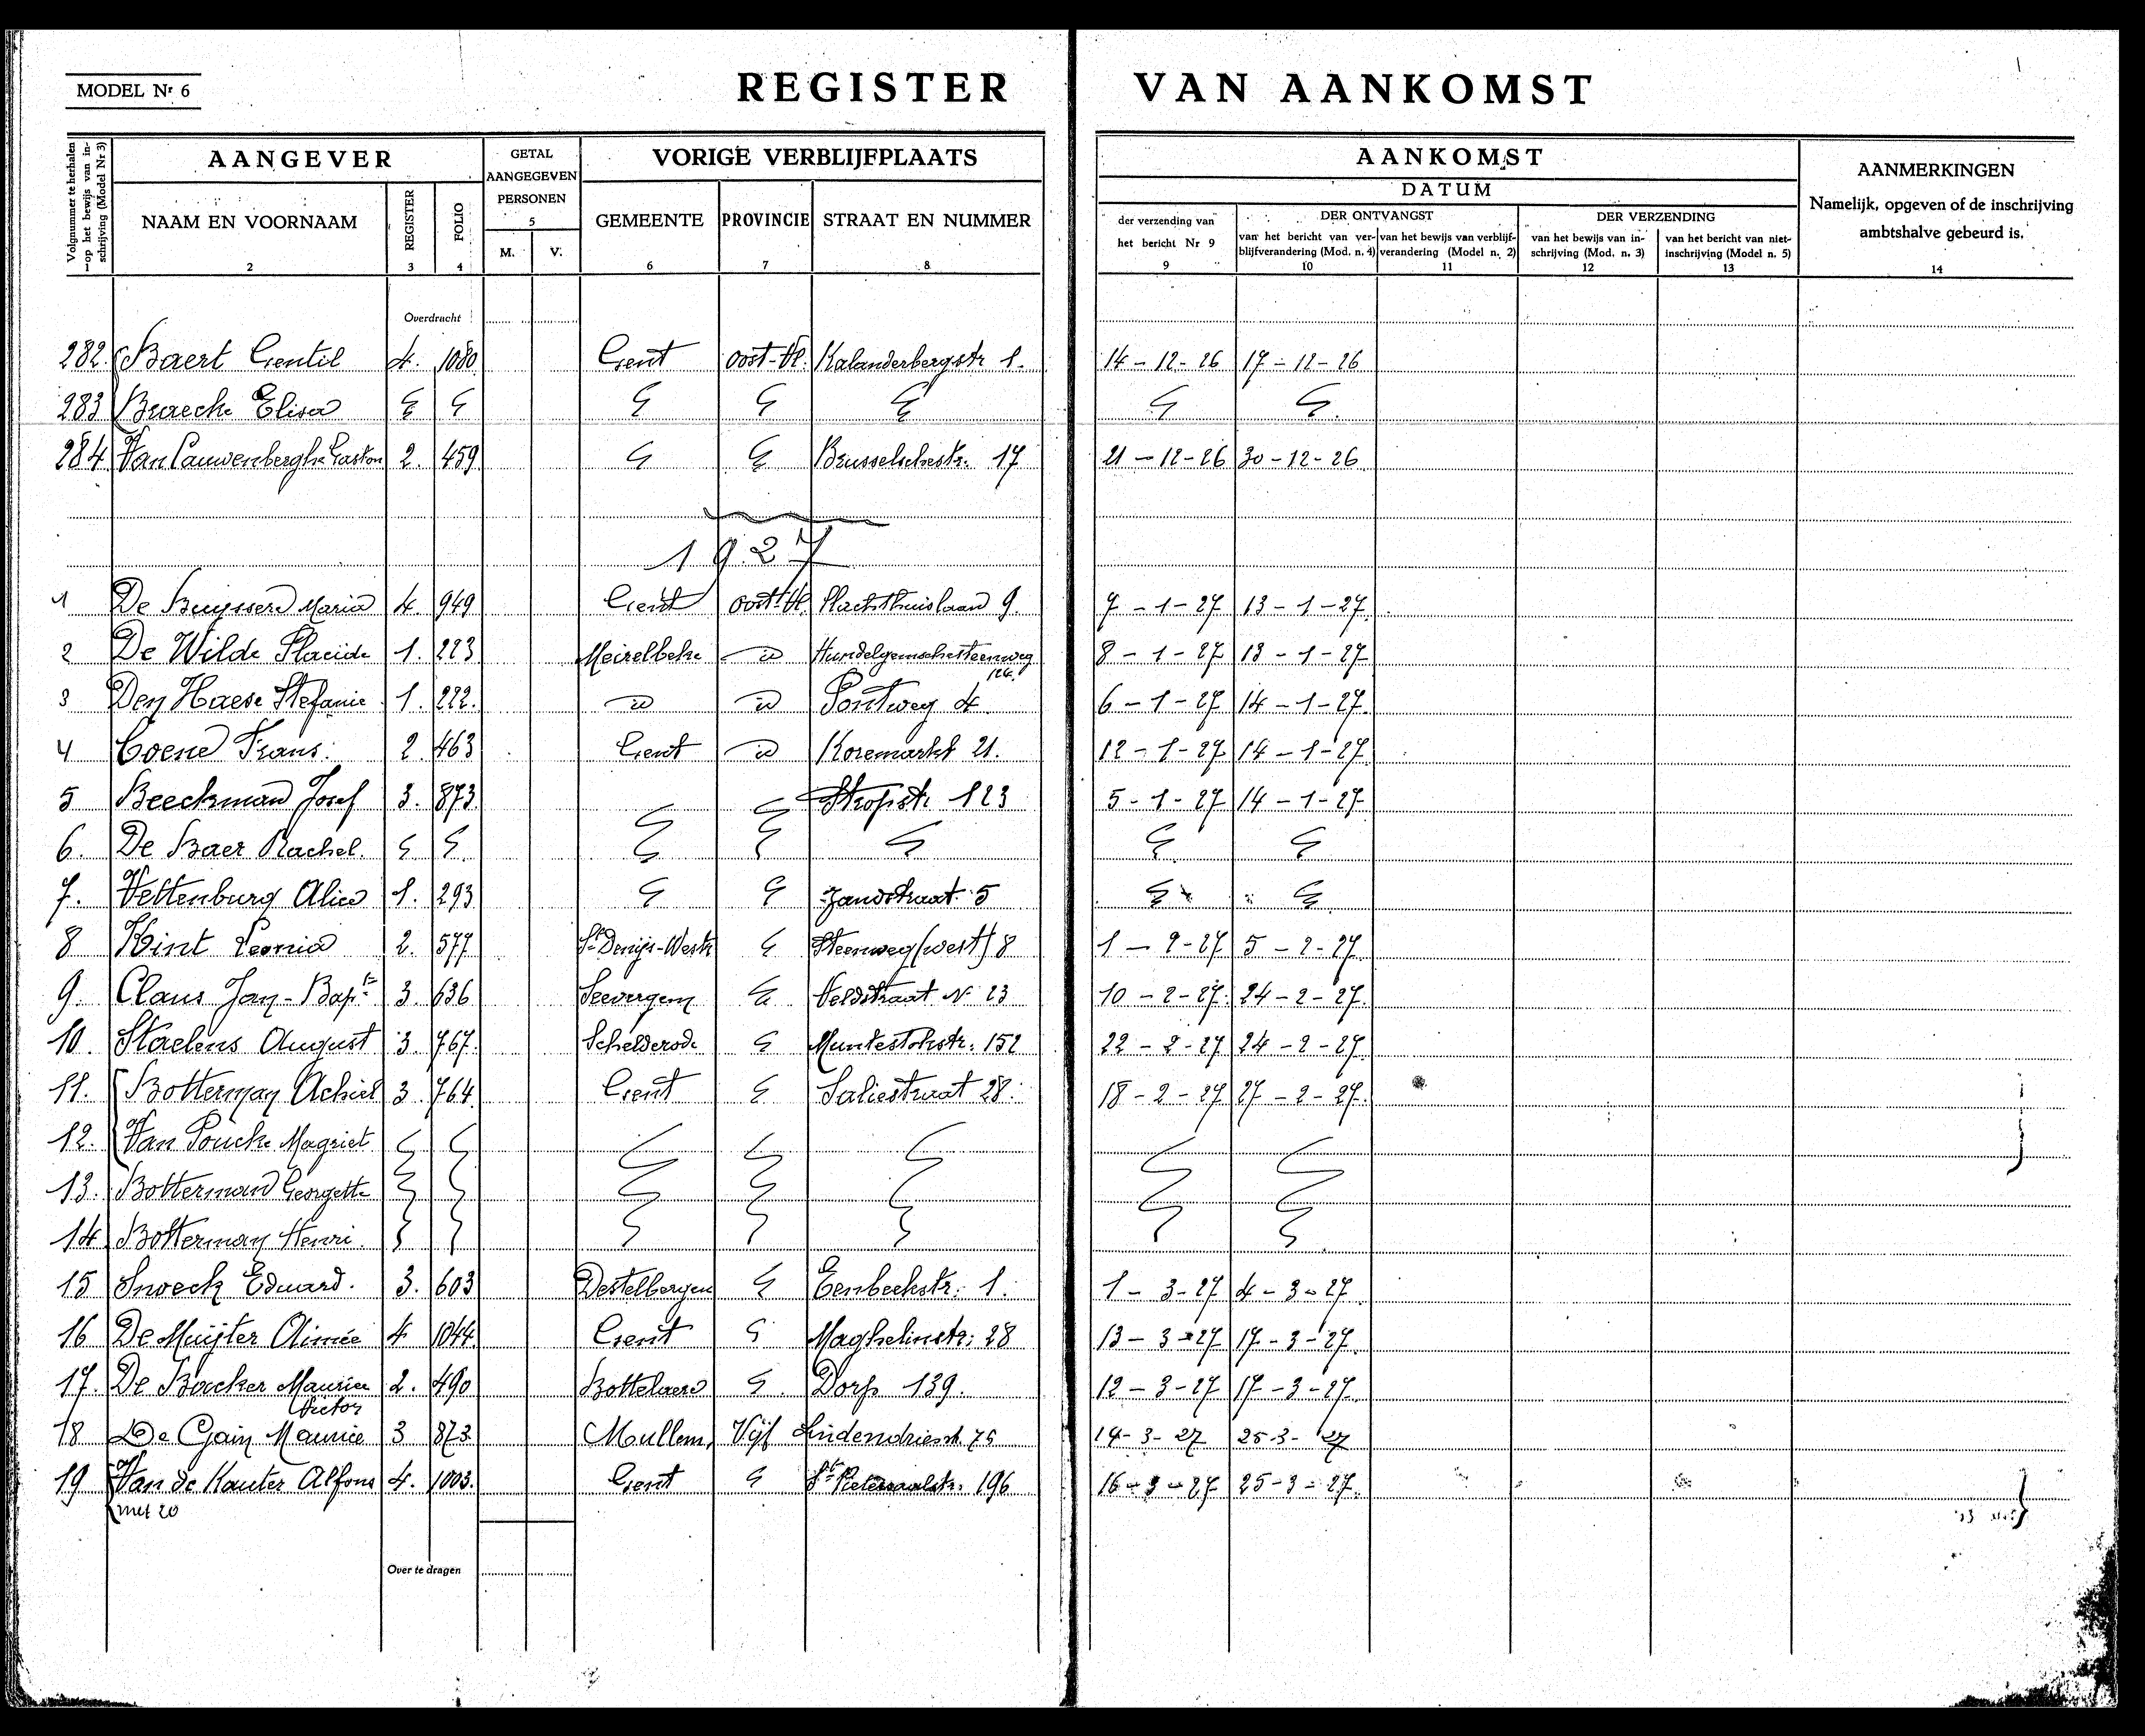 MODEL Nr 6
REGISTER VAN AANKOMST
Volgnummer te herhalen op het bewijs van inschrijving (Model Nr 3) 1
AANGEVER
NAAM EN VOORNAAM 2
REGISTER 3
FOLIO 4
GETAL AANGEGEVEN PERSONEN 5
M. V.
VORIGE VERBLIJFPLAATS
GEMEENTE 6
PROVINCIE 7
STRAAT EN NUMMER 8
AANKOMST
DATUM
der verzending van het bericht Nr 9 9
DER ONTVANGST
van het bericht van verblijfverandering (Mod. n. 4) 10
van het bewijs van verblijfverandering (Model n. 2) 11
DER VERZENDING
van het bewijs van inschrijving (Mod. n. 3) 12
van het bericht van niet-inschrijving (Model n. 5) 13
AANMERKINGEN
Namelijk, opgeven of de inschrijving
ambtshalve gebeurd is.
14
Overdracht
282. Baert Gentil 4. 1080 Gent Oost-Vl. Kalanderbergstr 1. 14-12-26 17-12-26
283 Braeck Elisa
284 Van Cauwenberghe Gaston 2. 459 Brusselschestr. 17 21-12-26 30-12-26
1927
1 De Buyssere Maria 4. 949 Gent Oost-Vl. Slachthuislaan 9. 7-1-27 13-1-27
2 De Wilde Placide 1. 223 Meirelbeke id Hundelgemschesteenweg 8-1-27 13-1-27
3 Den Haese Stefanie 1. 222. id id Pontweg 4 6-1-27 14-1-27
4 Coene Frans. 2. 463 Gent id Koremarkt 21. 12-1-27 14-1-27
5 Beeckman Josef 3. 873 Stropstr. 123 5-1-27 14-1-27
6. De Baer Rachel.
7. Vettenburg Alice 1. 293 Zandstraat 5
8 Hint Leonia 2. 577 St Denijs-Westr Steenweg (west) 8 1-2-27 5-2-27
9. Claus Jan-Bapte 3. 636 Seevergem Veldstraat N 23 10-2-27. 24-2-27.
10. Staelens August 3. 767. Schelderode Muntestokstr. 152 22-2-27 24-2-27.
11. Botterman Achiel 3. 764 Gent Saliestraat 28. 18-2-27 27-2-27.
12. Van Poucke Magriet
13. Botterman Georgette
14 Botterman Henri.
15 Snoeck Eduard. 3. 603 Destelbergen Eenbeekstr. 1. 1-3-27 4-3-27
16 De Muijter Aimée 4 1044 Gent Maghelinstr. 28 13-3-27 17-3-27
17. De Backer Maurice 2. 490 Bottelaere Dorp 139. 12-3-27 17-3-27.
Victor
18 De Gain Maurice 3 873. Mullem, Vijf Lindendriesst. 75 14-3-27 25-3-27
19 Van de Kauter Alfons 4. 1003. Gent St Pietersaalstr. 196 16-3-27 25-3-27.
met 20
Over te dragen